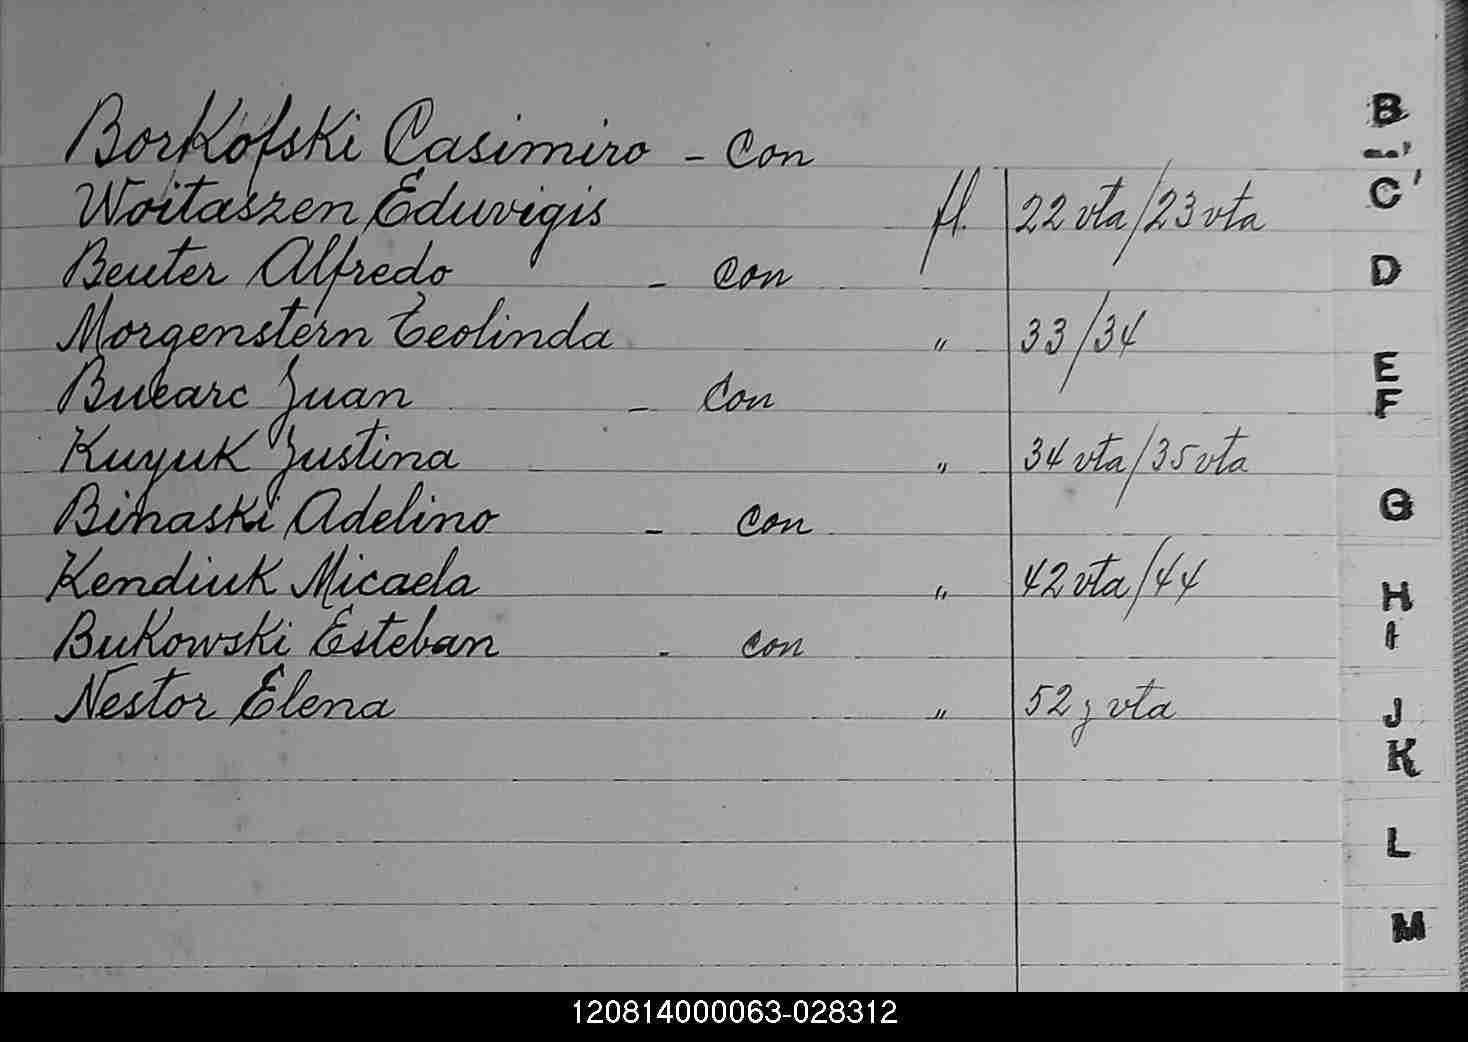 Borkofski Casimiro - Con
Woitaszen Eduvigis fl. 22 vta/23 vta
Beuter Alfredo - Con
Morgenstern Teolinda " 33/34
Buearc Juan - Con
Kuyuk Justina " 34 vta/35 vta
Binaski Adelino - Con
Kendiuk Micaela " 42 vta/44
Bukowski Esteban - con
Nestor Elena " 52 y vta
B
C
D
E
F
G
H
I
J
K
L
M
120814000063-028312